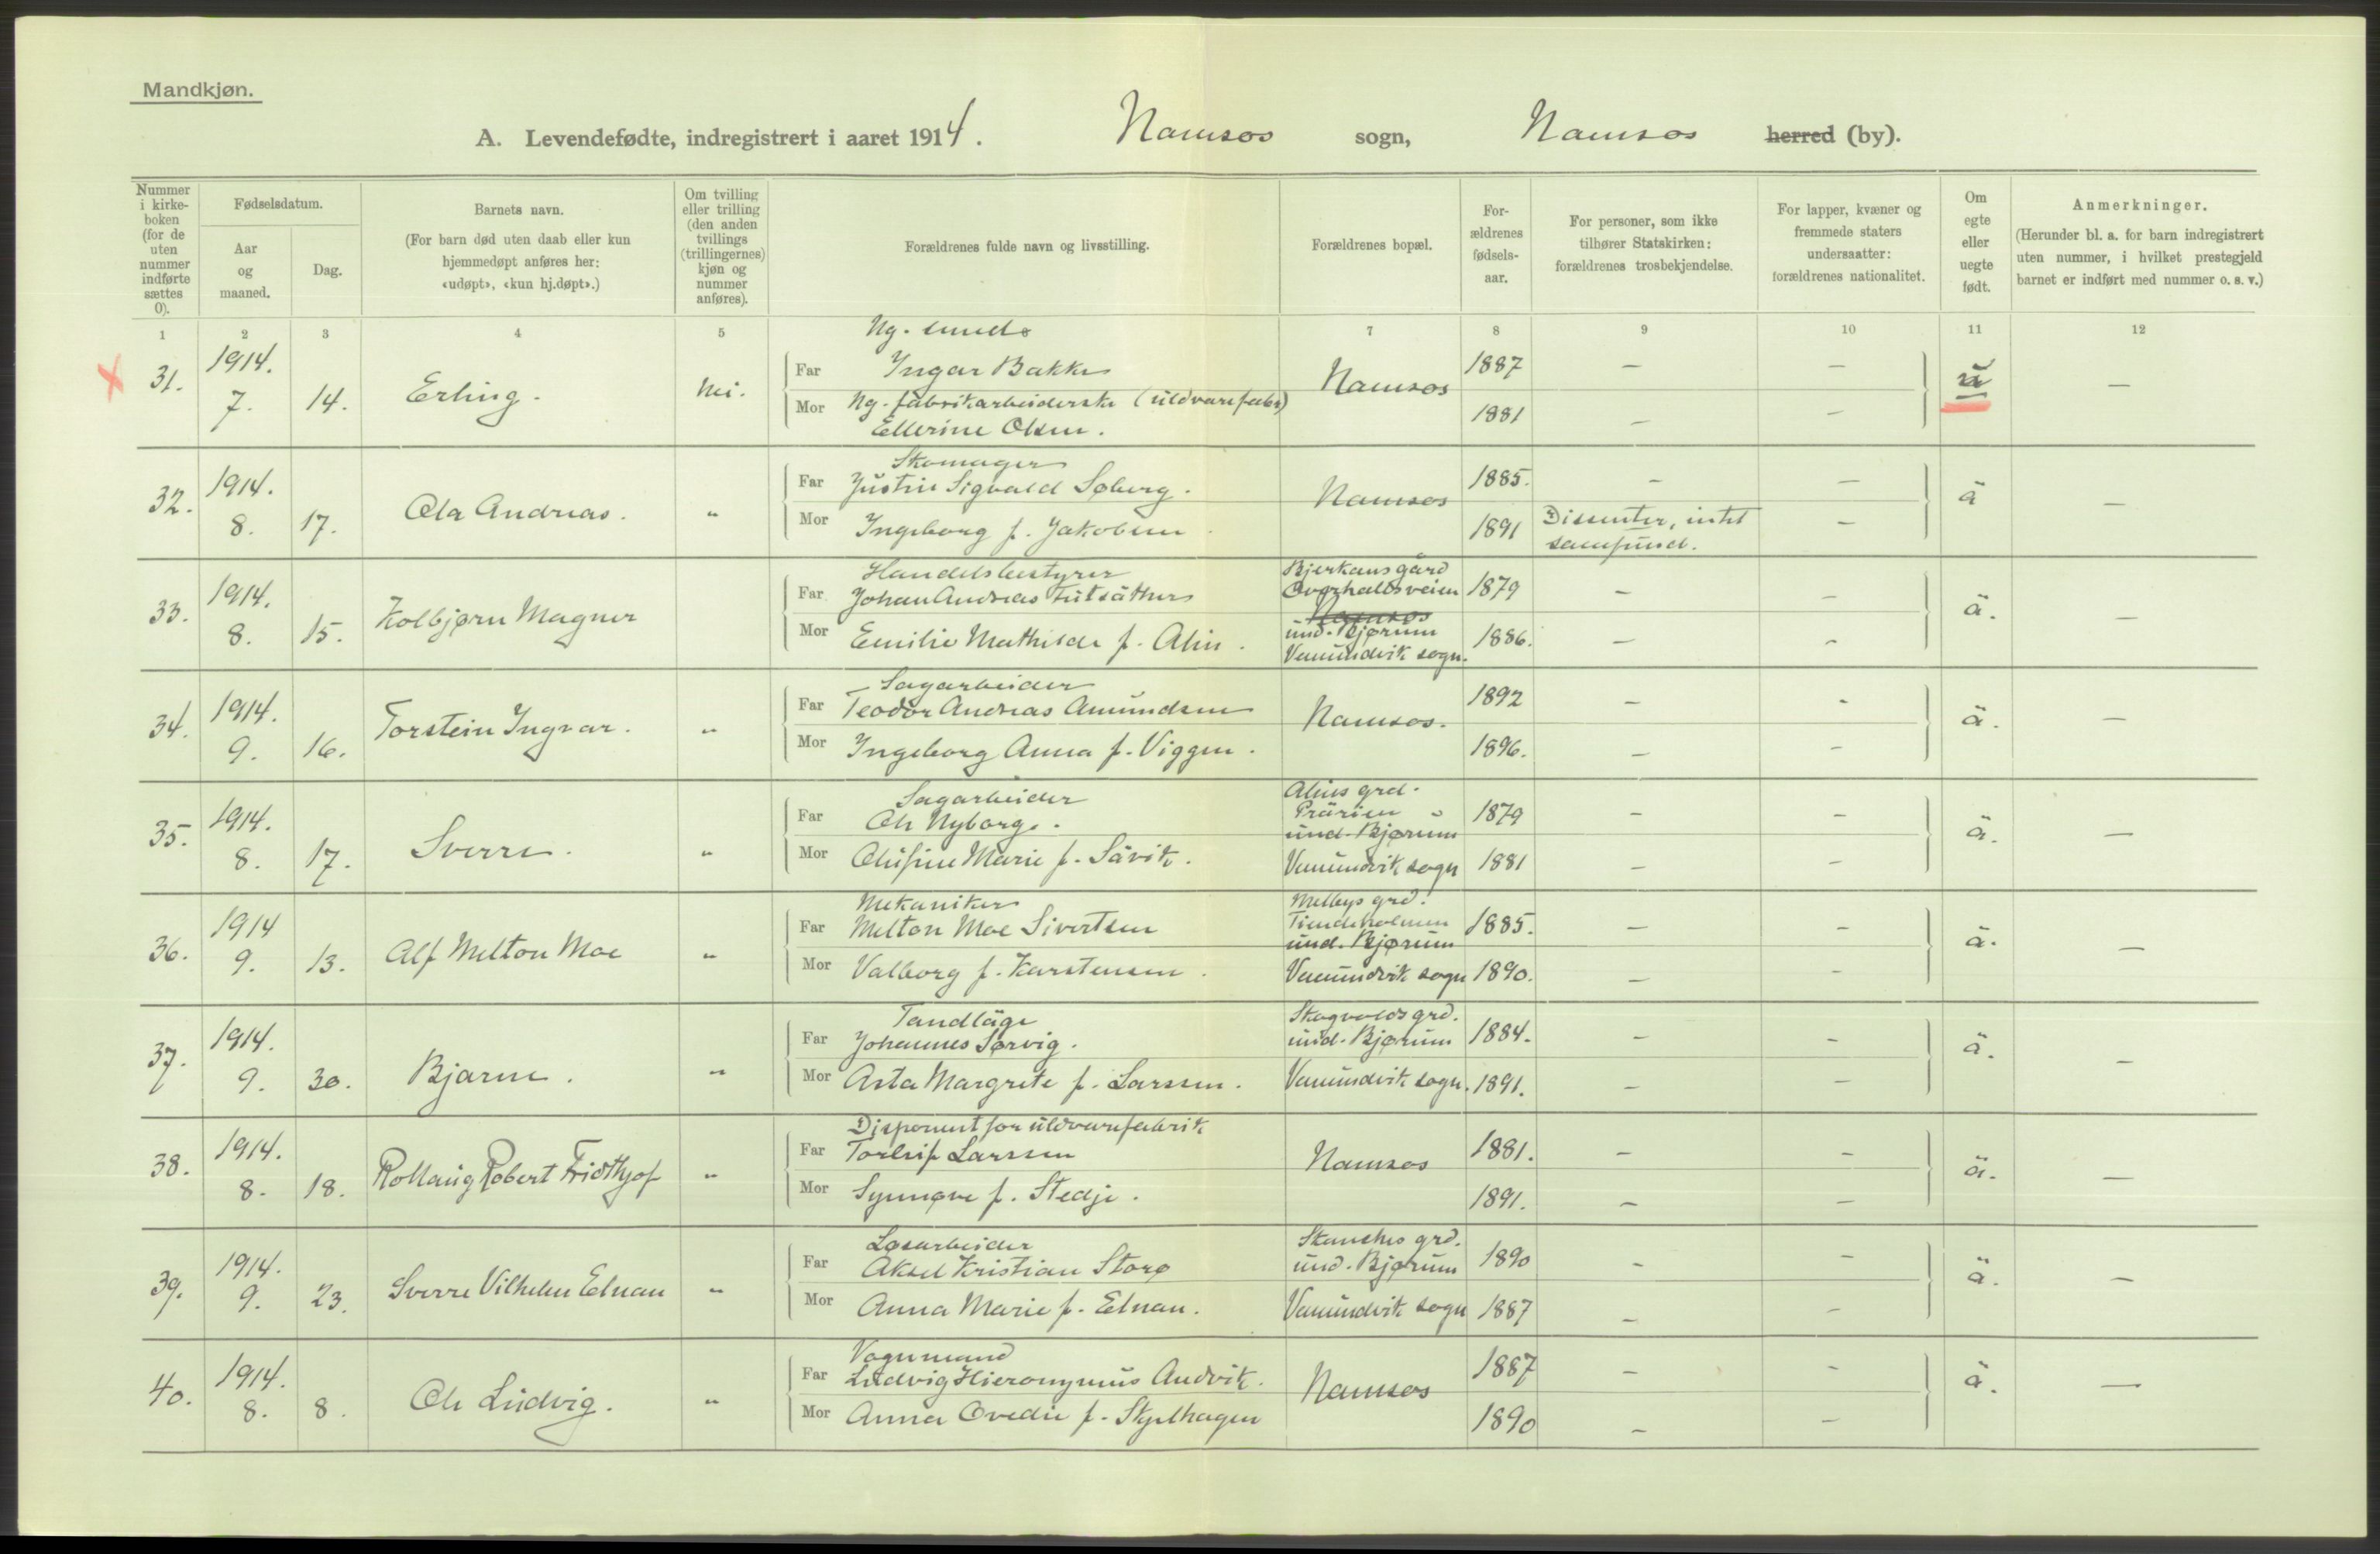 Mandkjøn.
A. Levendefødte, indregistrert i aaret 1914. Namsos sogn, Namsos herred (by).
Nummer i kirke-boken (for de uten nummer indførte sættes 0).
Fødselsdatum.
Aar og maaned.
Dag.
Barnets navn.
(For barn død uten daab eller kun hjemmedøpt anføres her: «udøpt», «kun hj.døpt».)
Om tvilling eller trilling (den anden tvillings (trillingernes) kjøn og nummer anføres).
Forældrenes fulde navn og livsstilling.
Forældrenes bopæl.
For-ældrenes fødsels-aar.
For personer, som ikke tilhører Statskirken: forældrenes trosbekjendelse.
For lapper, kvæner og fremmede staters undersaatter: forældrenes nationalitet.
Om egte eller uegte født.
Anmerkninger.
(Herunder bl. a. for barn indregistrert uten nummer, i hvilket prestegjeld barnet er indført med nummer o. s. v.)
1 2 3 4 5 7 8 9 10 11 12
31. 1914. 7. 14. Erling. Nei.
Far Ingar Bakke
Mor Ng. fabrikarbeiderske (uldvarefabr)
Ellerine Olsen.
Namsos 1887 — —
1881 — —
u —
32. 1914. 8. 17. Ola Andreas. "
Skomager
Far Justin Sigvald Søberg.
Mor Ingeborg f. Jakobsen
Namsos 1885. — —
1891 Dissenter, intet samfund. —
ä —
33. 1914. 8. 15. Kolbjørn Magner
Handelsbestyrer
Far Johan Andreas
Mor Emilie Mathilde f. Alin.
Bjerkansgård
Overhallsveien
Namsos
und. Bjørum
Vemundvik sogn.
1879 — —
1886. — —
ä. —
34. 1914. 9. 16. Torstein Ingvar. "
Sagarbeider
Far Teodor Andreas Amundsen
Mor Ingeborg Anna f. Viggen.
Namsos. 1892 — -
1896. — —
ä. —
35. 1914. 8. 17. Sverre. "
Sagarbeider
Far Ole Nyborg.
Mor Olufine Marie f. Sävik.
Alins grd.
Prärien
und. Bjørum
Vemundvik sogn
1879 — —
1881 — —
ä. —
36. 1914 9. 13. Alf Melton Moe "
Mekaniker
Far Melton Moe Sivertsen
Mor Valborg f. Karstensen.
Mellbys grd.
Tiendeholmen
und. Bjørum
Vemundvik sogn
1885. — —
1890. — —
ä. —
37. 1914. 9. 30. Bjarne. "
Tandläge
Far Johannes Sørvig.
Mor Asta Margrete f. Larssen.
Skogvolds grd.
und. Bjørum
Vemundvik sogn.
1884. — —
1891. — —
ä. —
38. 1914. 8. 18. Rollaug Robert Fridthjof "
Disponent for uldvarefabrik
Far Torleif Larssen
Mor Synnøve f. Stedje.
Namsos 1881. — —
1891. — —
ä. —
39. 1914. 9. 23. Sverre Vilhelm Elnan "
Løsarbeider
Far Aksel Kristian Storø
Mor Anna Marie f. Elnan.
grd.
und. Bjørum
Vemundvik sogn
1890 — —
1887 — —
ä. —
40. 1914. 8. 8. Ole Ludvig. "
Vognmand
Far Ludvig Hieronymus Andvik.
Mor Anna Ovedie f.
Namsos 1887 — —
1890 — —
ä. —